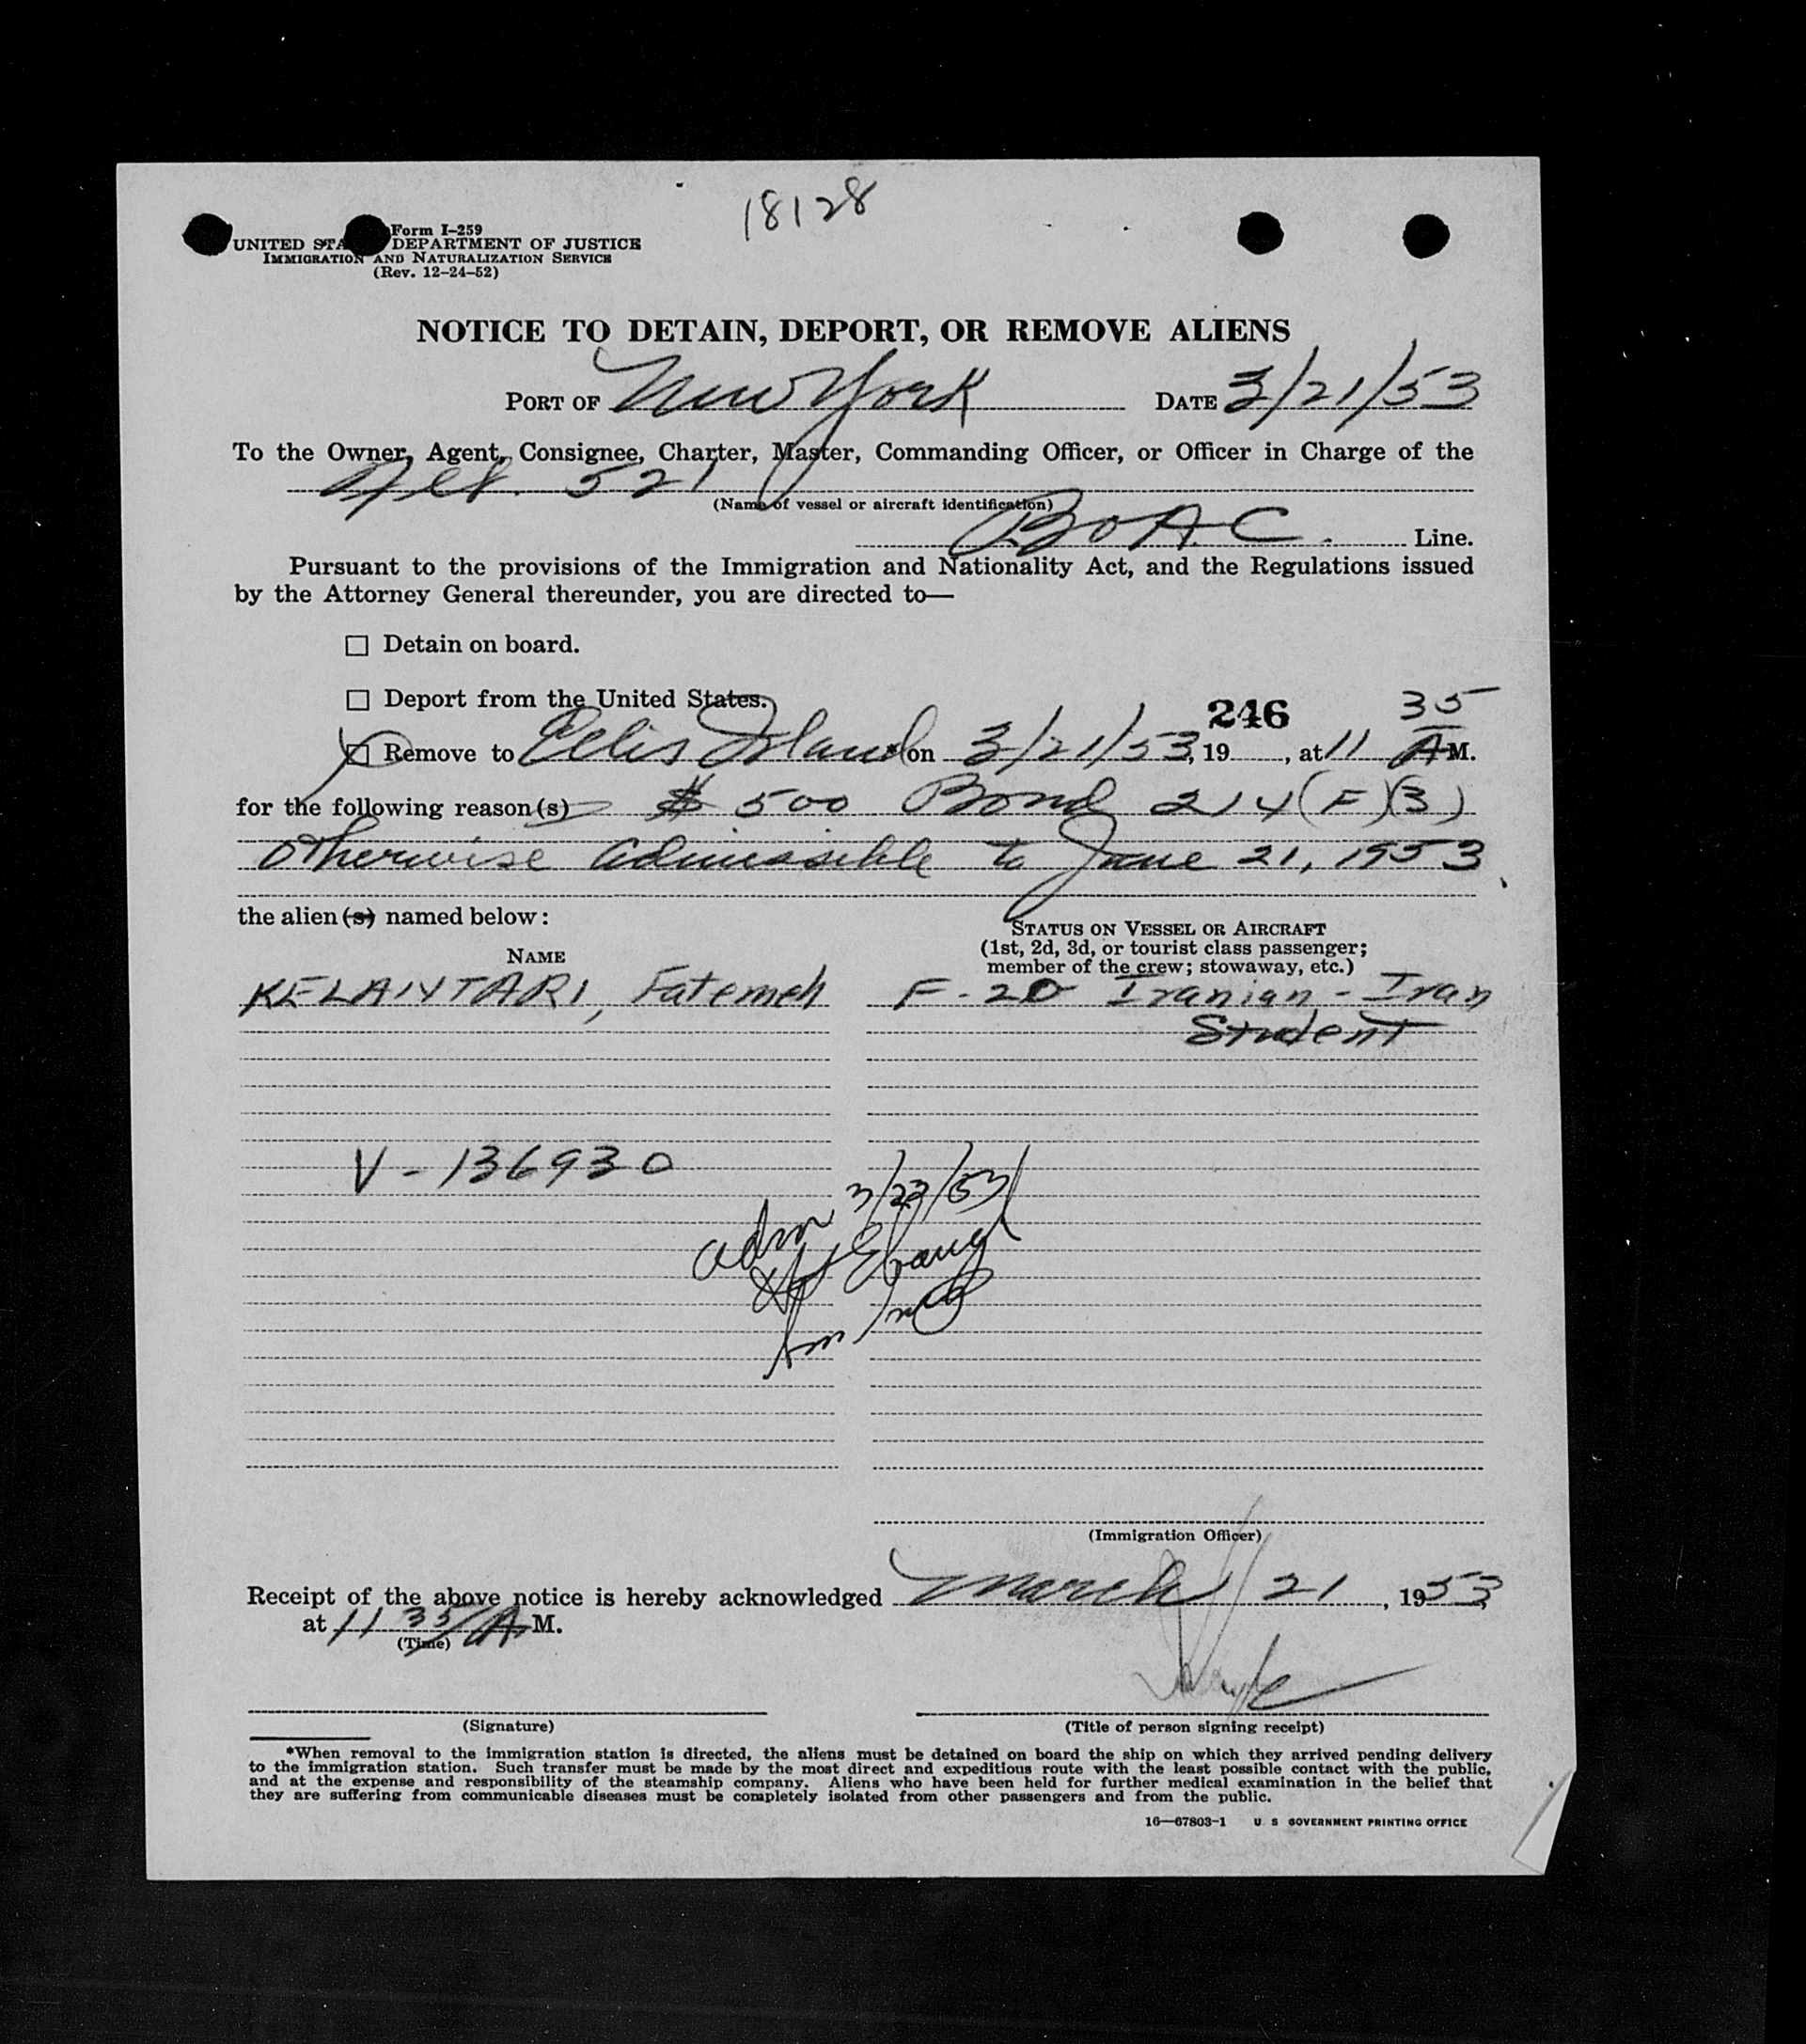 18128
Form I-259
UNITED STA DEPARTMENT OF JUSTICE
IMMIGRATION AND NATURALIZATION SERVICE
(Rev. 12-24-52)
NOTICE TO DETAIN, DEPORT, OR REMOVE ALIENS
PORT OF New York DATE 3/21/53
To the Owner, Agent, Consignee, Charter, Master, Commanding Officer, or Officer in Charge of the
521
(Name of vessel or aircraft identification)
BOAC. Line.
Pursuant to the provisions of the Immigration and Nationality Act, and the Regulations issued
by the Attorney General thereunder, you are directed to—
☐ Detain on board.
☐ Deport from the United States.
246
☐ Remove to Ellis Island *on 3/21/53, 19 , at 11 35 A M.
for the following reason(s) $500 Bond 214(F)(3)
otherwise admissible to June 21, 1953
the alien(s) named below:
NAME
STATUS ON VESSEL OR AIRCRAFT
(1st, 2d, 3d, or tourist class passenger;
member of the crew; stowaway, etc.)
KELANTARI, Fatemeh F-20 Iranian - Iran
Student
V-136930
adm 3/23/53
(Immigration Officer)
Receipt of the above notice is hereby acknowledged March 21, 1953,
at 11 35/A M.
(Time)
(Signature)
(Title of person signing receipt)
*When removal to the immigration station is directed, the aliens must be detained on board the ship on which they arrived pending delivery
to the immigration station. Such transfer must be made by the most direct and expeditious route with the least possible contact with the public,
and at the expense and responsibility of the steamship company. Aliens who have been held for further medical examination in the belief that
they are suffering from communicable diseases must be completely isolated from other passengers and from the public.
16—67803-1 U S GOVERNMENT PRINTING OFFICE